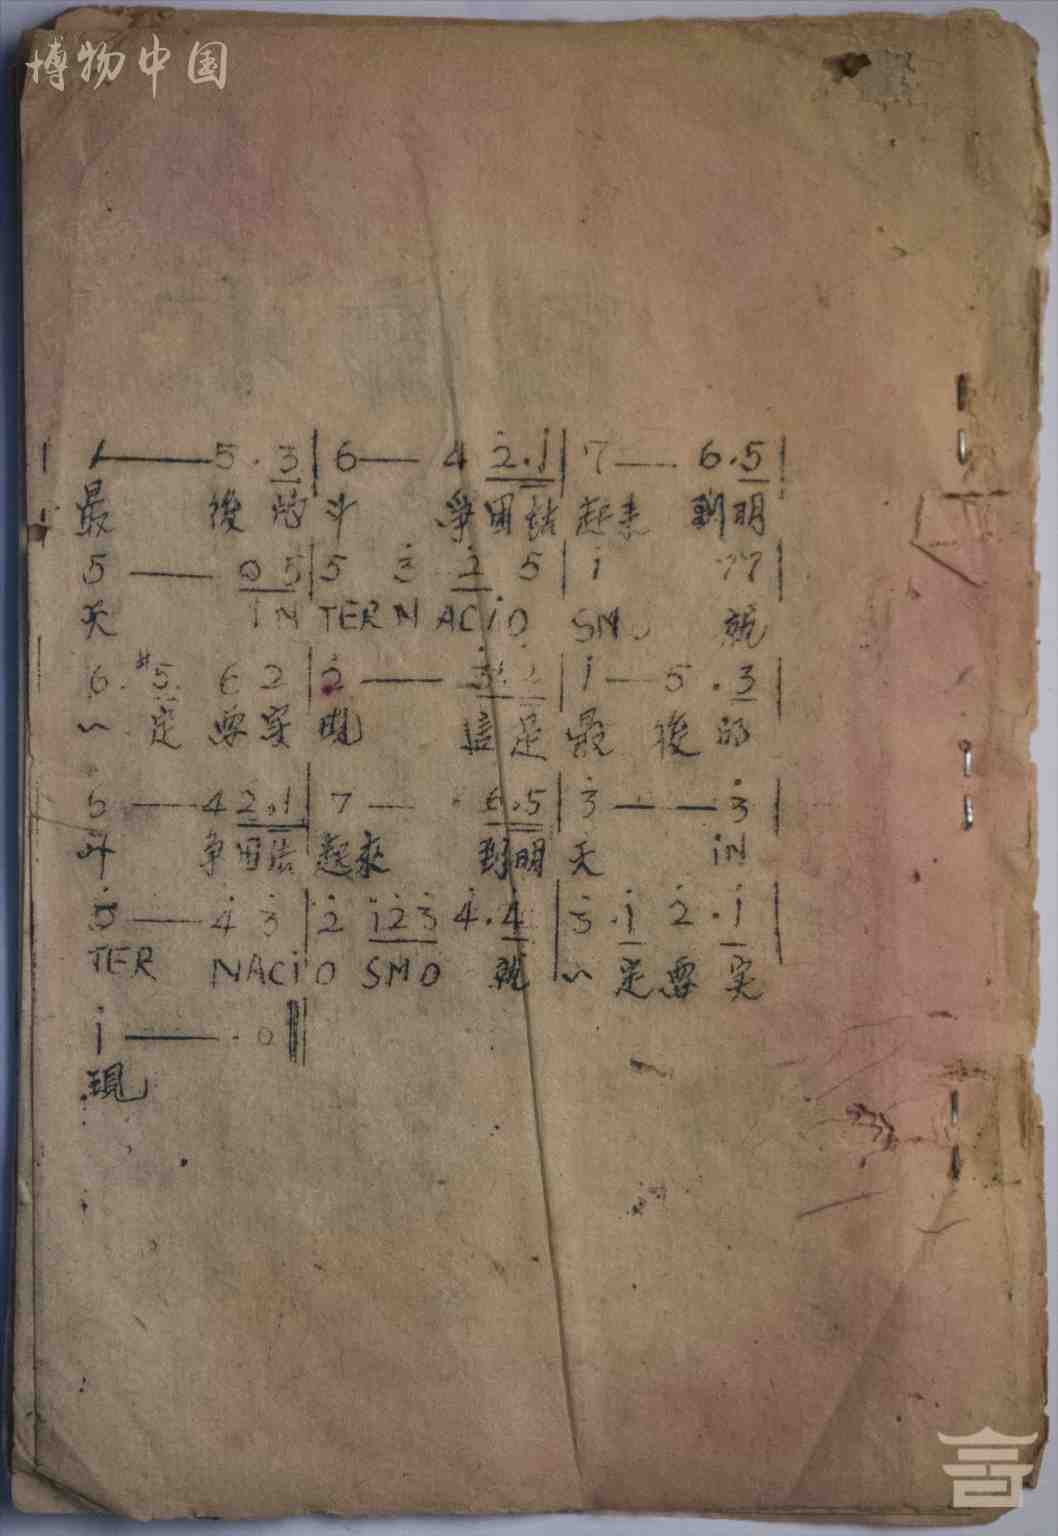 博物中国
1——5.3|6—4 2.1|7—6.5|
最 後 的 斗 爭 团 结 起来 到明
5——0 5|5 3 2 5|1 77|
天 IN TER N ACiO SMO 就
6.#5 6 2|2——3.2|1—5.3|
一 定 要 实 现 這 是 最 後 的
6——4 2.1|7—6.5|3——3|
斗 争 团结 起來 到明 天 iN
5——4 3|2 123 4.4|3.1 2.1|
TER NACiO SMO 就 一 定 要 实
1——.0‖
現